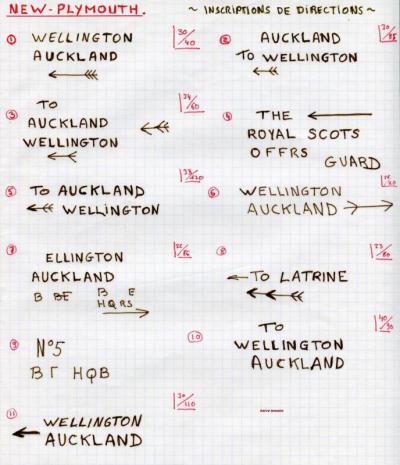 NEW-PLYMOUTH.
~ INSCRIPTIONS DE DIRECTIONS ~
1 30/40
WELLINGTON
AUCKLAND
2
AUCKLAND
TO WELLINGTON
3
TO
AUCKLAND
WELLINGTON
4
THE
ROYAL SCOTS
OFFRS
GUARD
5
TO AUCKLAND
WELLINGTON
6
WELLINGTON
AUCKLAND
7
ELLINGTON
AUCKLAND
B BE B E
HQRS
8 23/80
TO LATRINE
9
N°5
B Γ HQB
10
TO
WELLINGTON
AUCKLAND
11 30/110
WELLINGTON
AUCKLAND